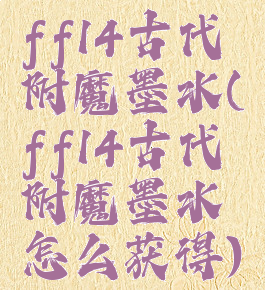 ff14古代
附魔墨水(
ff14古代
附魔墨水
怎么获得)